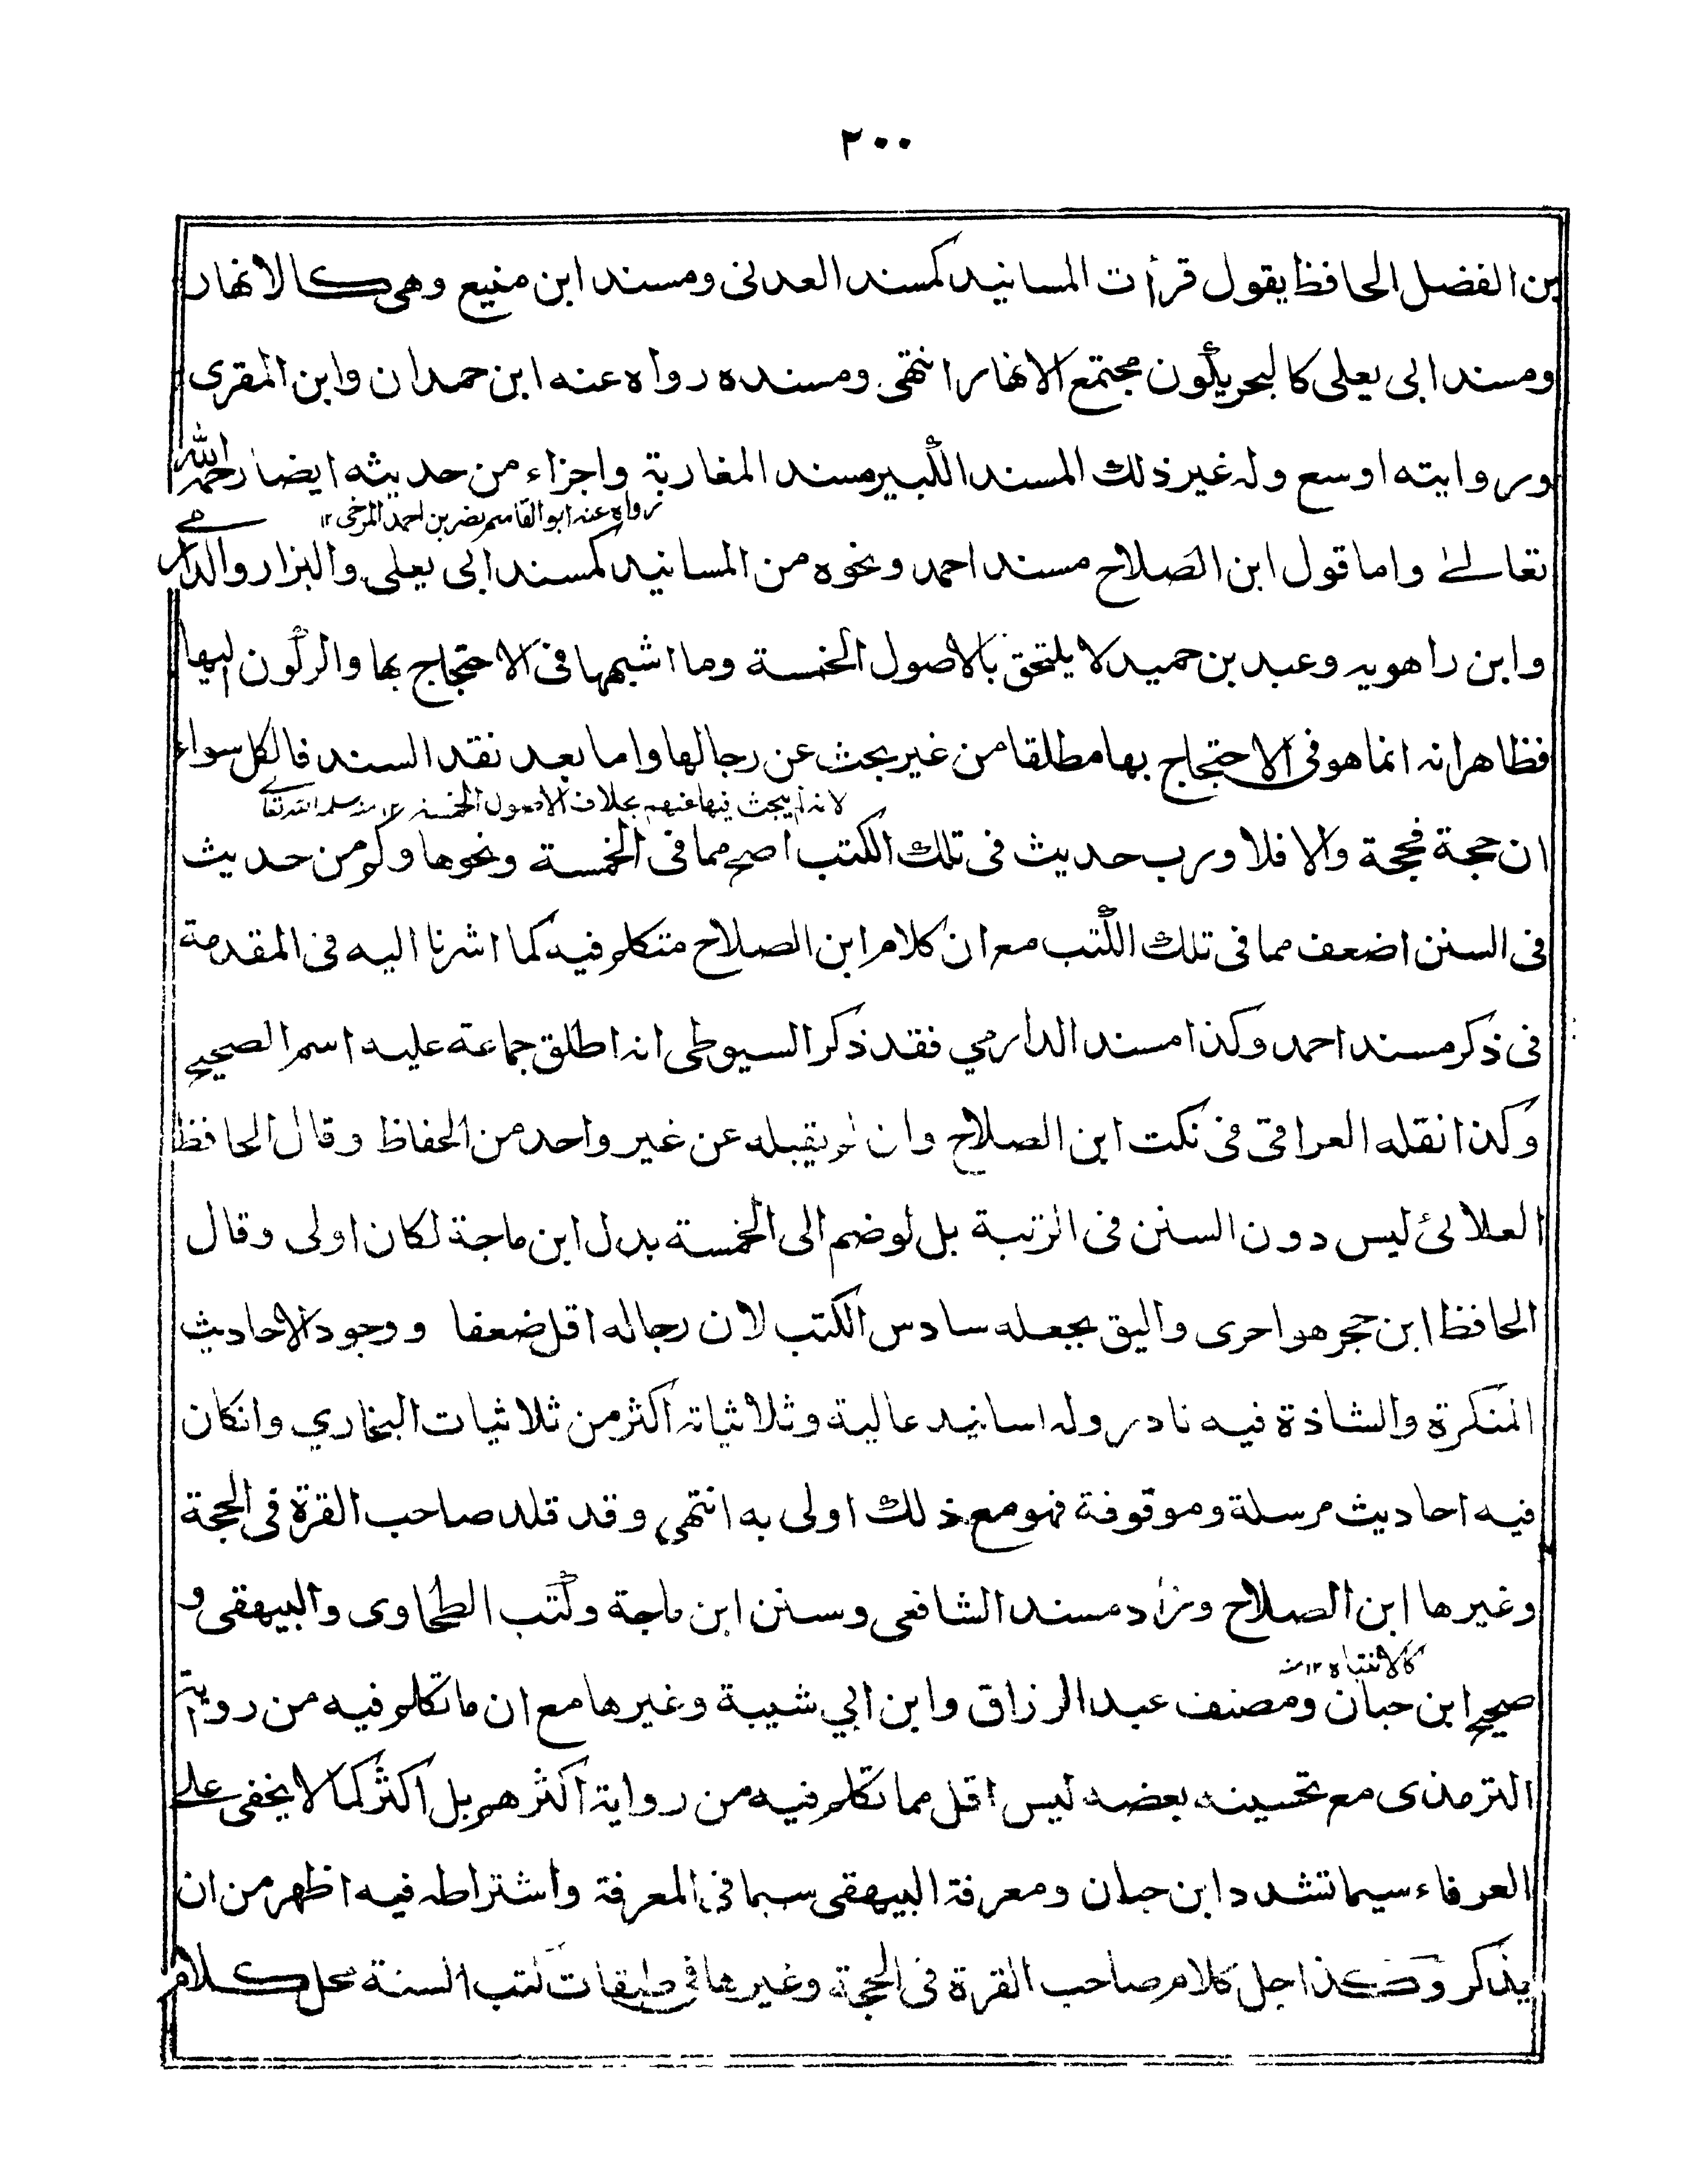 ٢٠٠
بن الفضل الحافظ يقول قرأت المسانيد كمسند العدني ومسند ابن منيع وهي كالانهار
ومسند ابي يعلى كالبحر يكون مجتمع الانهار انتهى ومسنده رواه عنه ابن حمدان وابن المقرى
وروايته اوسع وله غير ذلك المسند الكبير مسند المغاربة واجزاء من حديثه ايضا رحمه الله
رواه عنه ابو القاسم نصر بن احمد المرخى ١٢
تعالى واما قول ابن الصلاح مسند احمد ونحوه من المسانيد كمسند ابى يعلى والبزار والدارمي
وابن راهويه وعبد بن حميد لا يلتحق بالاصول الخمسة وما اشبهها فى الاحتجاج بها والركون اليها
فظاهر انه انما هو فى الاحتجاج بها مطلقا من غير بحث عن رجالها واما بعد نقد السند فالكل سواء
لانه لم يبحث فيها عنهم بخلاف الاصول الخمسة ١٢ منه سلمه الله تعالى
ان حجة فحجة والا فلا ورب حديث فى تلك الكتب اصح مما فى الخمسة ونحوها وكم من حديث
فى السنن اضعف مما فى تلك الكتب مع ان كلام ابن الصلاح متكلم فيه كما اشرنا اليه فى المقدمة
فى ذكر مسند احمد وكذا مسند الدارمي فقد ذكر السيوطى انه اطلق جماعة عليه اسم الصحيح
وكذا نقله العراقى فى نكت ابن الصلاح وان لم يقبله عن غير واحد من الحفاظ وقال الحافظ
العلائى ليس دون السنن فى الرتبة بل لو ضم الى الخمسة بدل ابن ماجة لكان اولى وقال
الحافظ ابن حجر هو احرى واليق بجعله سادس الكتب لان رجاله اقل ضعفا ووجود الاحاديث
المنكرة والشاذة فيه نادر وله اسانيد عالية وثلاثياته اكثر من ثلاثيات البخاري وانكان
فيه احاديث مرسلة وموقوفة فهو مع ذلك اولى به انتهى وقد قلد صاحب القرة فى الحجة
وغيرها ابن الصلاح وزاد مسند الشافعى وسنن ابن ماجة وكتب الطحاوى والبيهقى و
كالانتباه ١٢ منه
صحيح ابن حبان ومصنف عبد الرزاق وابن ابي شيبة وغيرها مع ان ما تكلم فيه من رواية
الترمذى مع تحسينه بعضه ليس اقل مما تكلم فيه من رواية اكثرهم بل اكثر كما لا يخفى على
العرفاء سيما تشدد ابن حبان ومعرفة البيهقى سيما فى المعرفة واشتراطه فيه اظهر من ان
يذكر وكذا جل كلام صاحب القرة فى الحجة وغيرها فى طبقات كتب السنة محل كلام